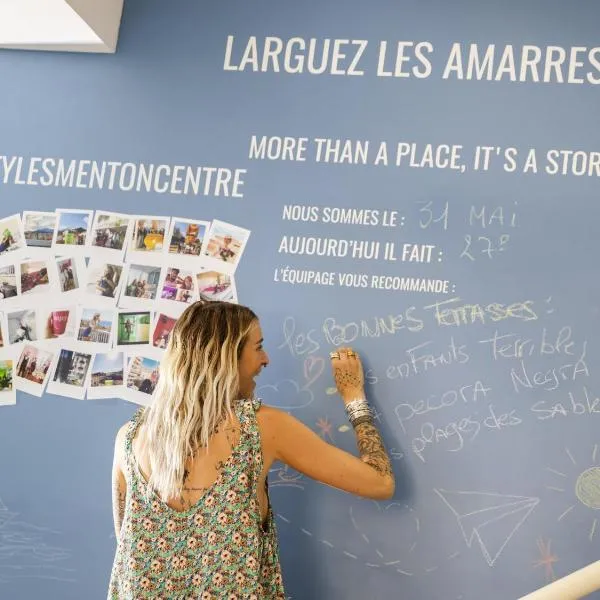 LARGUEZ LES AMARRES
MORE THAN A PLACE, IT'S A STOR
TYLESMENTONCENTRE
NOUS SOMMES LE : 31 MAI
AUJOURD'HUI IL FAIT : 27°
L'ÉQUIPAGE VOUS RECOMMANDE :
les BONNES TerrASSES :
enfAnts terrible
pecorA NegrA
plAges des sAble